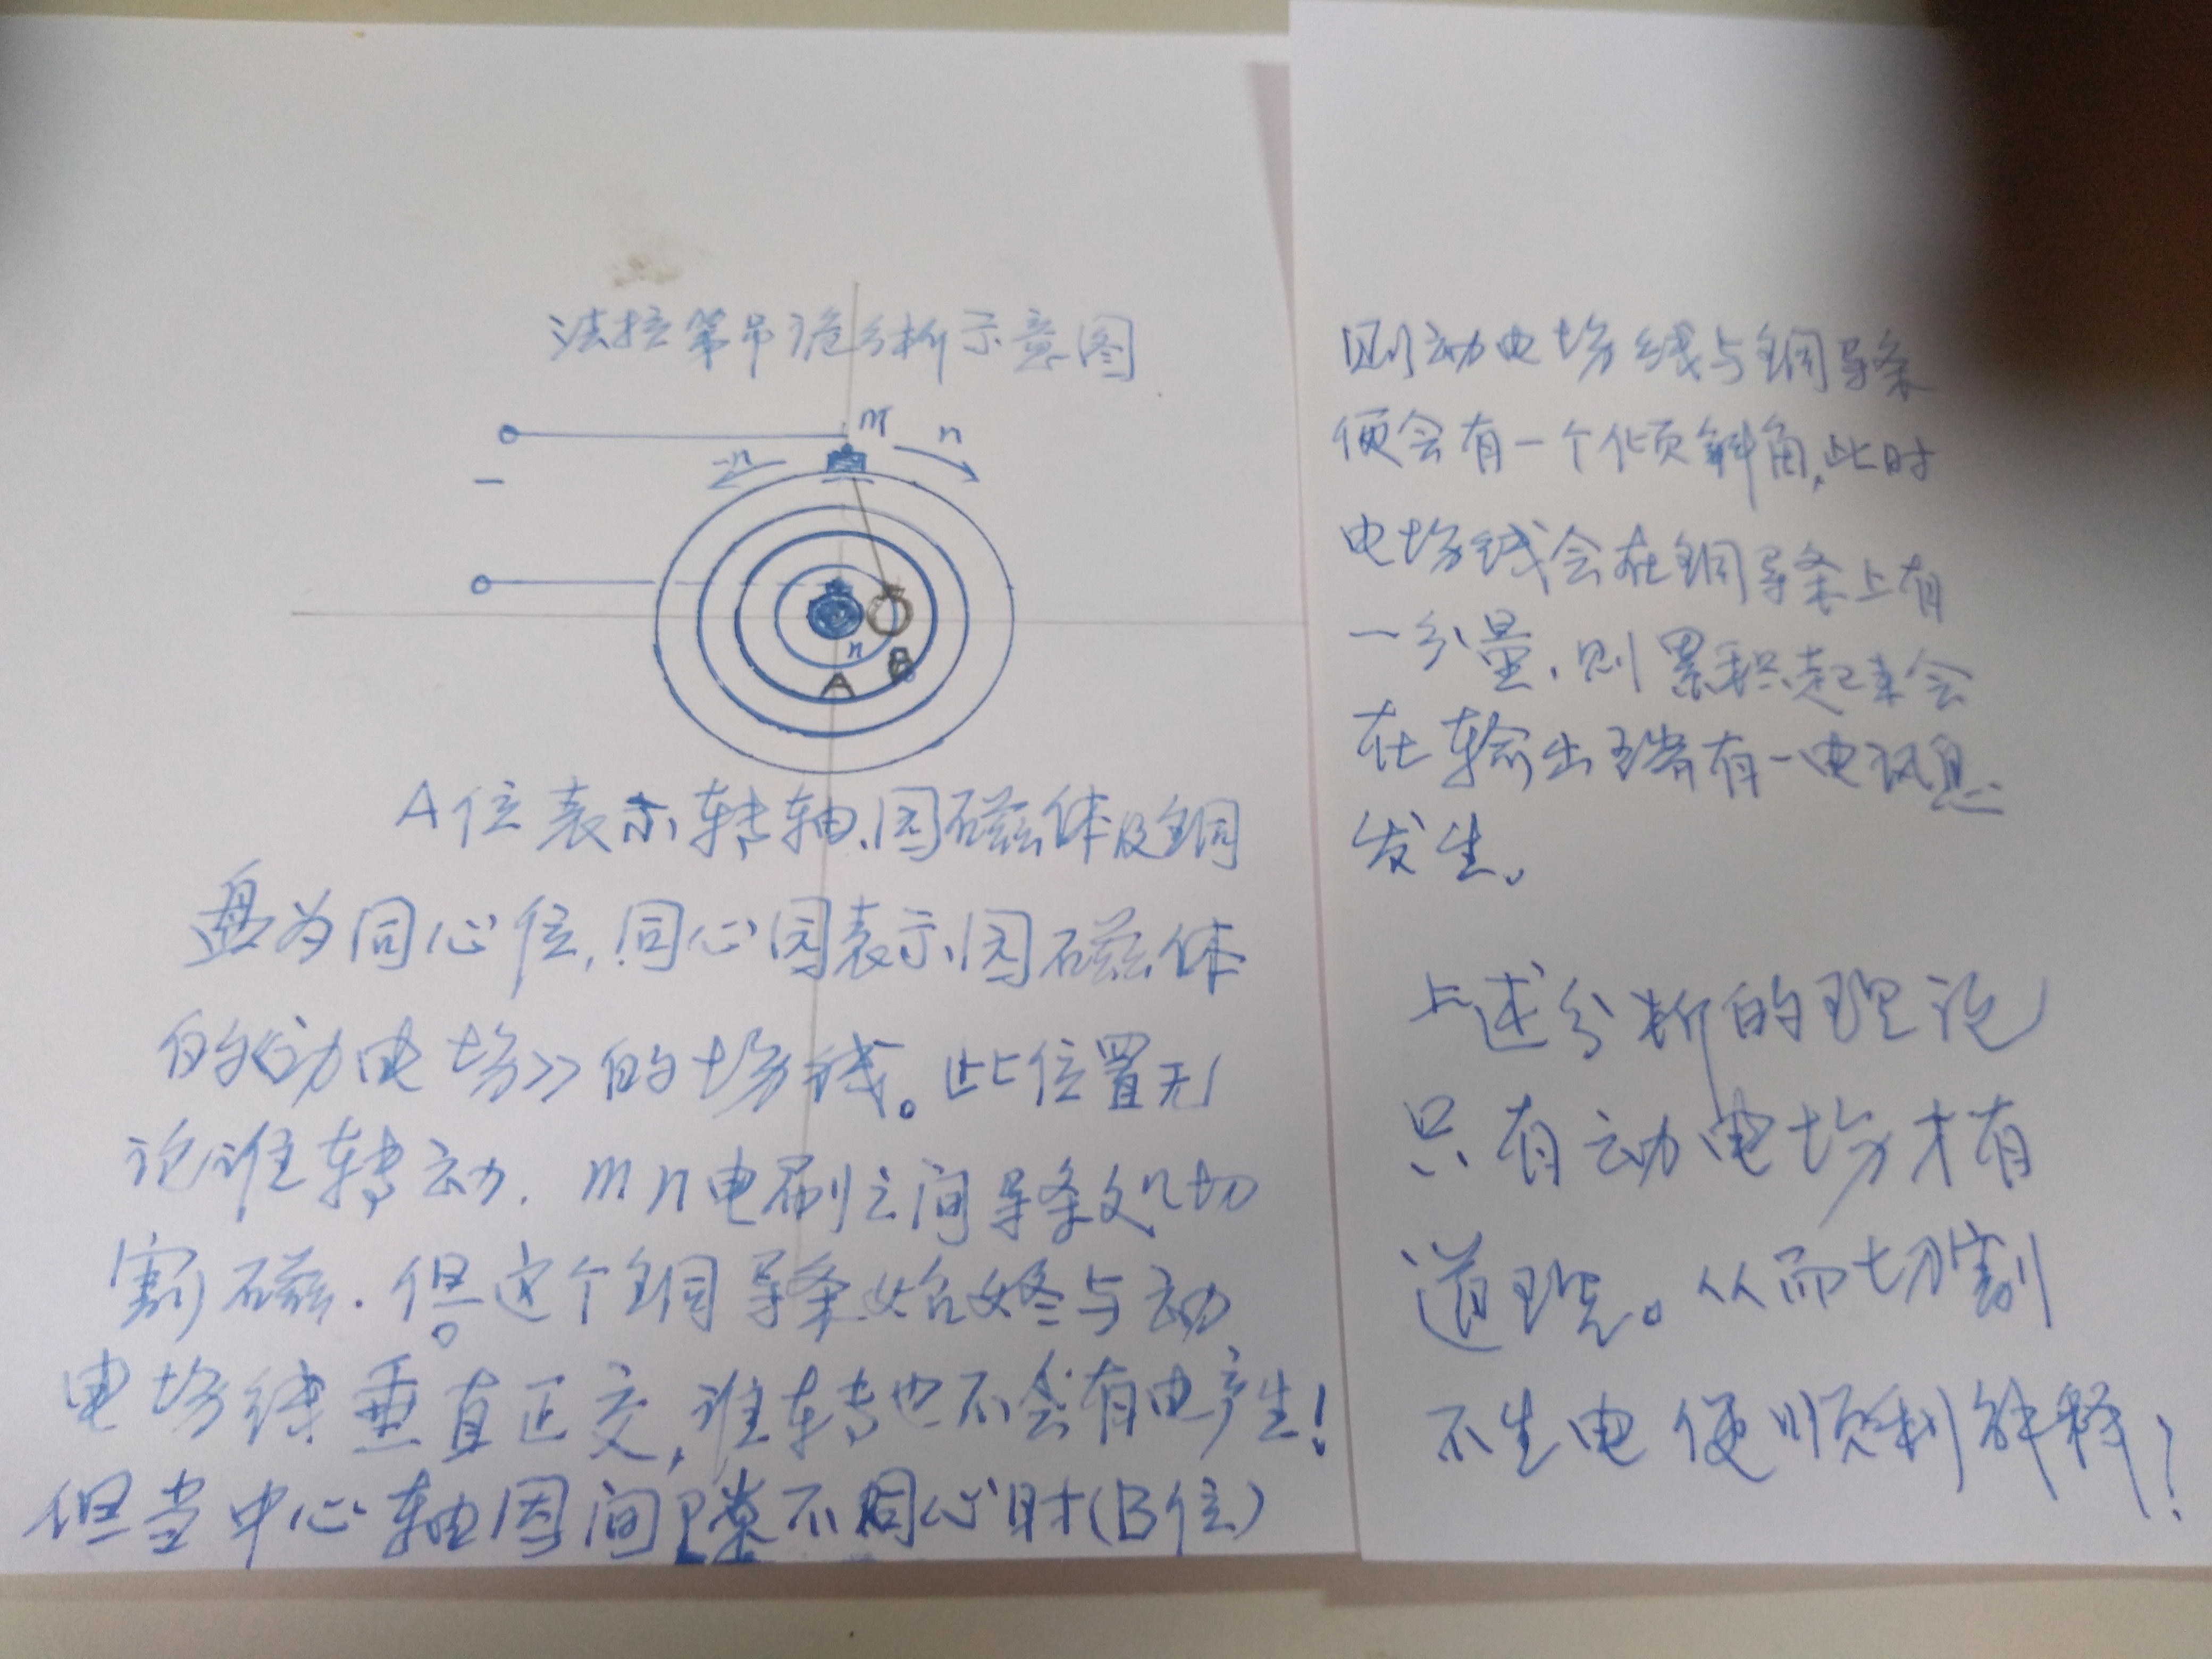 法拉第吊诡分析示意图
m
n
-n
n
A
B
A位表示转轴、园磁体及铜
盘为同心位,同心园表示园磁体
的《动电场》的场线。此位置无
论谁转动,mn电刷之间导条处切
割磁.但这个铜导条始终与动
电场线垂直正交,谁转也不会有电产生!
但当中心轴因间隙不同心时(B位)
则动电场线与铜导条
便会有一个倾斜角,此时
电场线会在铜导条上有
一分量,则累积起来会
在输出端有一电讯息
发生。
上述分析的理论
只有动电场才有
道理。从而切割
不生电便顺利解释!